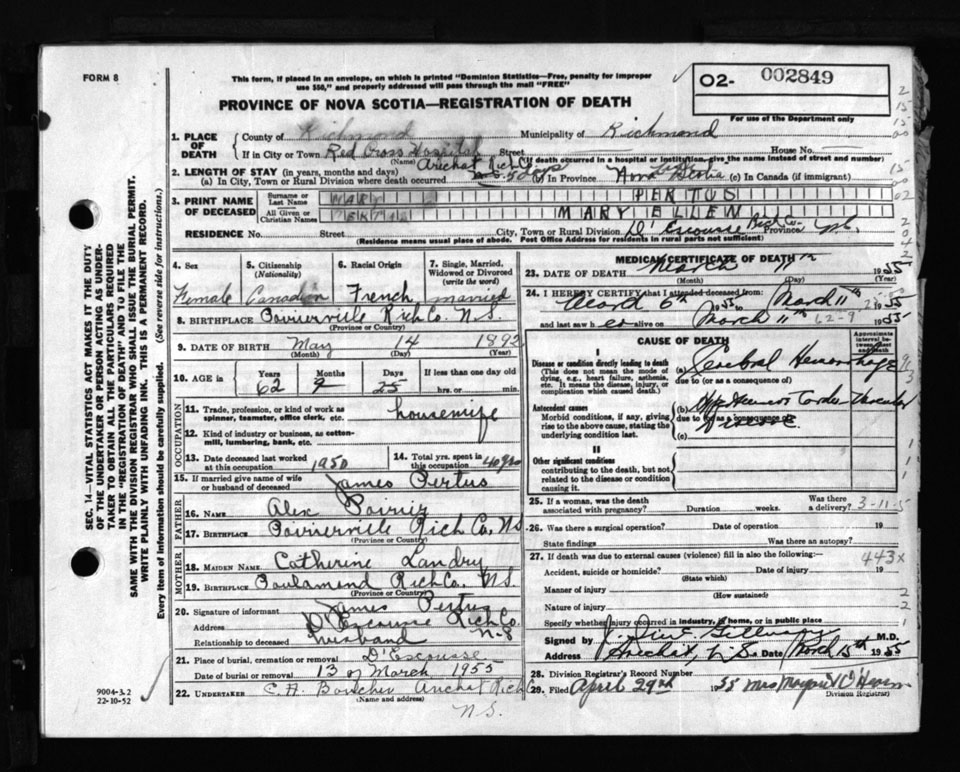 FORM 8
This form, if placed in an envelope, on which is printed "Dominion Statistics—Free, penalty for improper
use $50," and properly addressed will pass through the mail "FREE"
PROVINCE OF NOVA SCOTIA—REGISTRATION OF DEATH
02- 002849
For use of the Department only
1. PLACE OF DEATH
County of Richmond Municipality of Richmond
If in City or Town Red Cross Hospital Street House No. —
(Name) Arichat Rich Co. (If death occurred in a hospital or institution, give the name instead of street and number)
2. LENGTH OF STAY (in years, months and days)
(a) In City, Town or Rural Division where death occurred 5 days (b) In Province Nova Scotia (c) In Canada (if immigrant)
3. PRINT NAME OF DECEASED
Surname or Last Name PERTUS
All Given or Christian Names MARY ELLEN
RESIDENCE No. Street City, Town or Rural Division D'Escousse Rich Co. Province N.S.
(Residence means usual place of abode. Post Office Address for residents in rural parts not sufficient)
4. Sex
Female
5. Citizenship (Nationality)
Canadian
6. Racial Origin
French
7. Single, Married, Widowed or Divorced (write the word)
married
8. BIRTHPLACE Poirierville Rich Co. N.S.
(Province or Country)
9. DATE OF BIRTH May 14 1892
(Month) (Day) (Year)
10. AGE in Years Months Days If less than one day old
62 9 25 hrs. or min.
OCCUPATION
11. Trade, profession, or kind of work as spinner, teamster, office clerk, etc. housewife
12. Kind of industry or business, as cotton-mill, lumbering, bank, etc.
13. Date deceased last worked at this occupation 1950
14. Total yrs. spent in this occupation 40 yrs
15. If married give name of wife or husband of deceased James Pertus
FATHER
16. Name Alex Poirier
17. Birthplace Poirierville Rich Co. N.S.
(Province or Country)
MOTHER
18. MAIDEN NAME Catherine Landry
19. BIRTHPLACE Rich Co. N.S.
(Province or Country)
20. Signature of informant James Pertus
Address D'Escousse Rich Co. N.S
Relationship to deceased husband
21. Place of burial, cremation or removal D'Escousse
Date of burial or removal 13 of March 1955
22. UNDERTAKER C.H. Boucher Arichat Rich
(Name and address)
N.S.
MEDICAL CERTIFICATE OF DEATH
23. DATE OF DEATH March 11th 1955
(Month) (Day) (Year)
24. I HEREBY CERTIFY that I attended deceased from:
March 6th 1955 to March 11th 1955
and last saw her alive on March 11th 1955
62-9
CAUSE OF DEATH
Approximate interval between onset and death
I
Disease or condition directly leading to death
(This does not mean the mode of dying, e.g., heart failure, asthenia, etc. It means the disease, injury, or complication which caused death.)
(a) Cerebral Hemorrhage
due to (or as a consequence of)
Antecedent causes
Morbid conditions, if any, giving rise to the above cause, stating the underlying condition last.
(b) Cardio Vascular
due to (or as a consequence of)
Disease
(c)
II
Other significant conditions
contributing to the death, but not related to the disease or condition causing it.
25. If a woman, was the death associated with pregnancy? Duration weeks. Was there a delivery?
3-11-5
26. Was there a surgical operation? Date of operation 19
State findings Was there an autopsy?
27. If death was due to external causes (violence) fill in also the following:—
443x
Accident, suicide or homicide? Date of injury 19
(State which)
Manner of injury
(How sustained)
Nature of injury
Specify whether injury occurred in industry, in home, or in public place
Signed by M.D.
Address Arichat, N.S. Date March 15th 1955
28. Division Registrar's Record Number
29. Filed April 29th 1955 Mrs
Division Registrar)
SEC. 14—VITAL STATISTICS ACT MAKES IT THE DUTY
OF THE UNDERTAKER OR PERSON ACTING AS UNDER-
TAKER TO OBTAIN ALL THE PARTICULARS REQUIRED
IN THE "REGISTRATION OF DEATH" AND TO FILE THE
SAME WITH THE DIVISION REGISTRAR WHO SHALL ISSUE THE BURIAL PERMIT.
WRITE PLAINLY WITH UNFADING INK. THIS IS A PERMANENT RECORD.
Every item of information should be carefully supplied. (See reverse side for instructions.)
9004-3.2
22-10-52